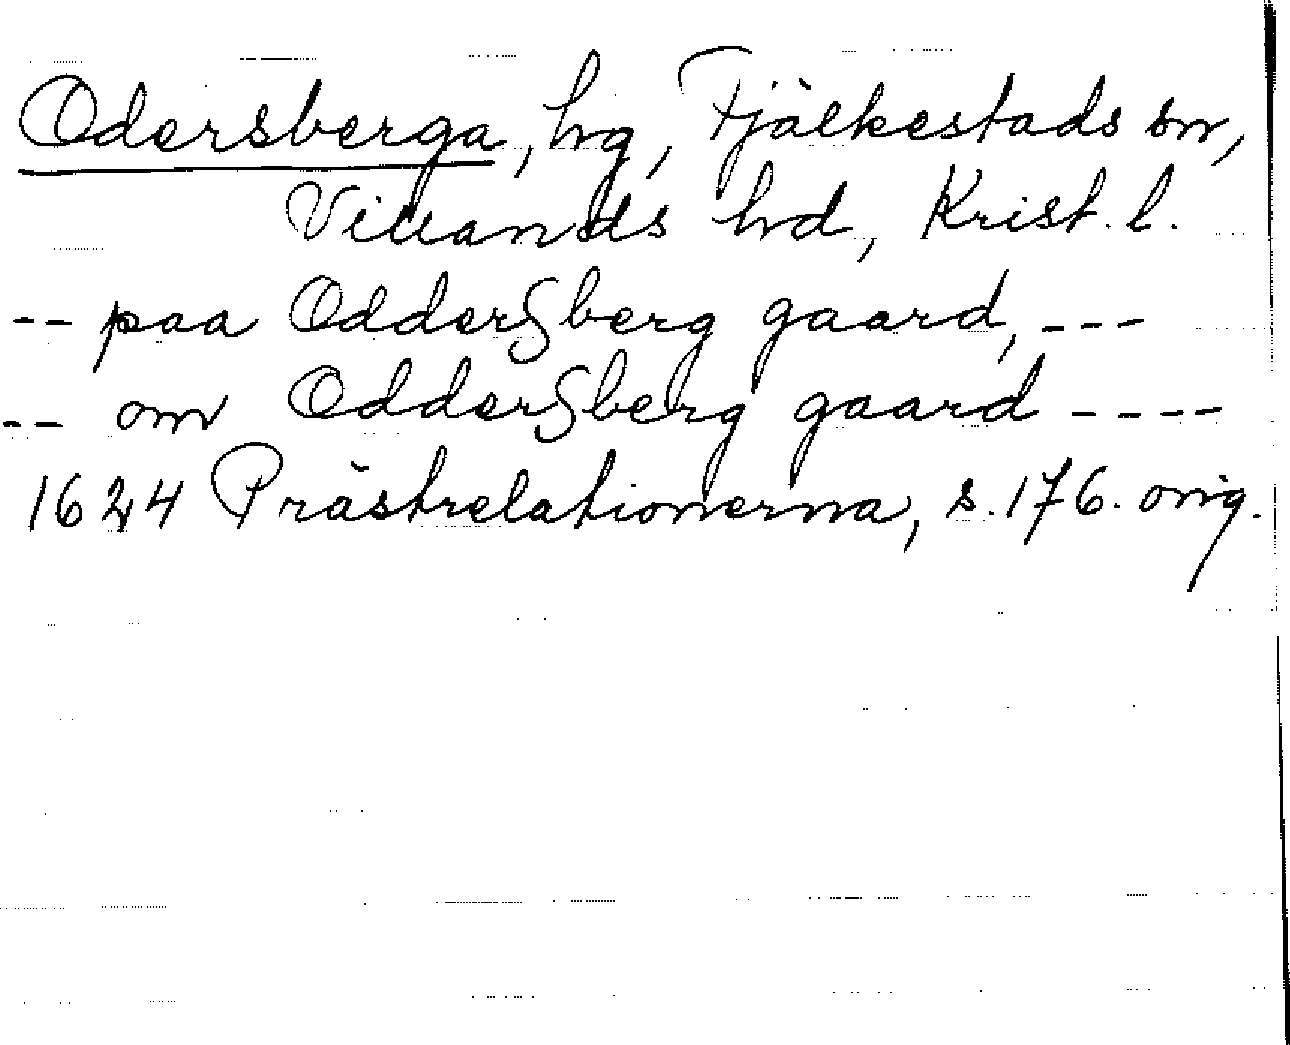 Odersberga, hg, Fjälkestads sn,
Villands hd, Krist. l.
-- paa Oddersberg gaard, ---
-- om Oddersberg gaard ----
1624 Prästrelationerna, s. 176. orig.